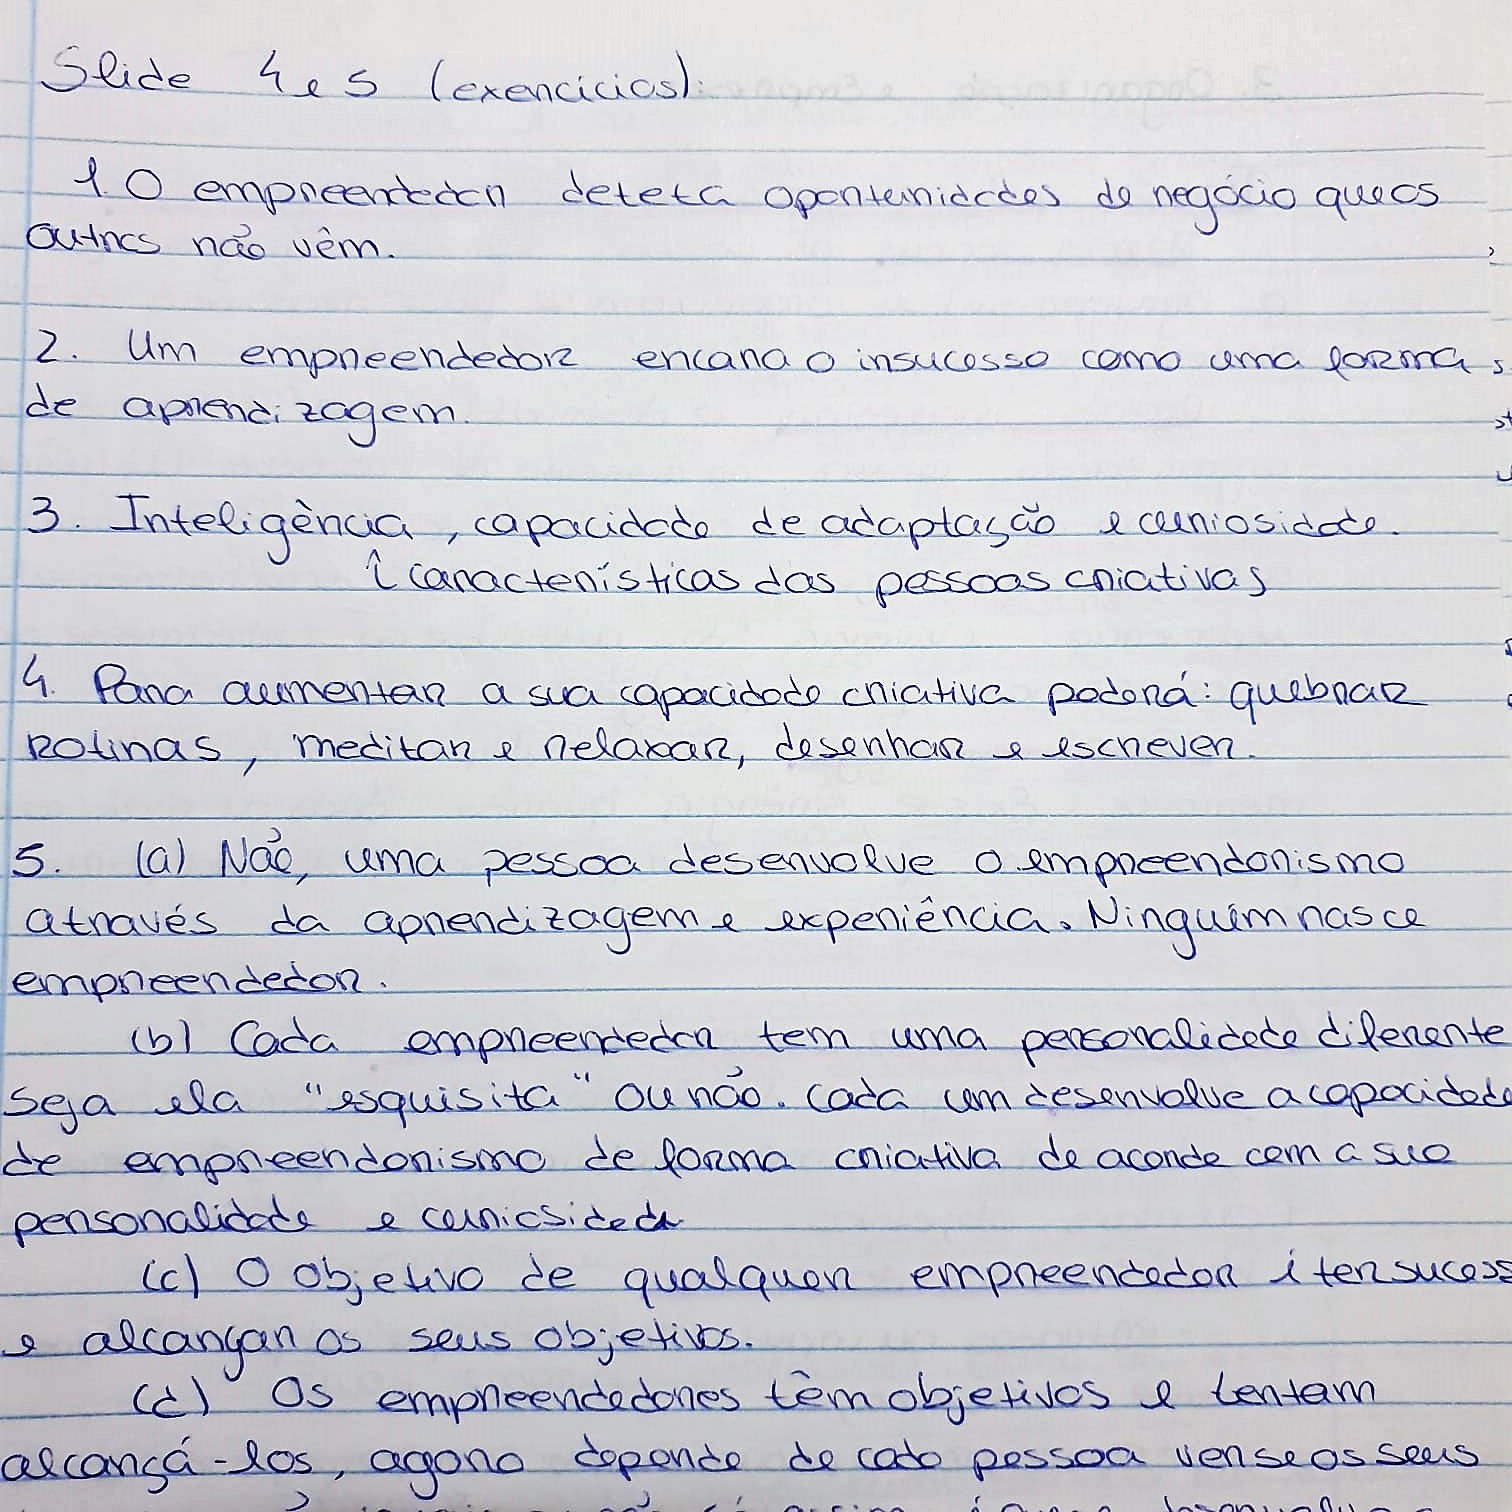 Slide 4 e 5 (exercícios):
1. O empreendedor deteta oportunidades de negócio que os
outros não vêm.
2. Um empreendedor encara o insucesso como uma forma
de aprendizagem.
3. Inteligência, capacidade de adaptação e curiosidade.
características das pessoas criativas
4. Para aumentar a sua capacidade criativa poderá: quebrar
rotinas, meditar e relaxar, desenhar e escrever.
5. (a) Não, uma pessoa desenvolve o empreendorismo
através da aprendizagem e experiência. Ninguém nasce
empreendedor.
(b) Cada empreendedor tem uma personalidade diferente
seja ela "esquisita" ou não. Cada um desenvolve a capacidade
de empreendorismo de forma criativa de acordo com a sua
personalidade e curiosidade
(c) O objetivo de qualquer empreendedor é ter sucess
e alcançar os seus objetivos.
(d) Os empreendedores têm objetivos e tentam
alcançá-los, agora depende de cada pessoa ver se os seus